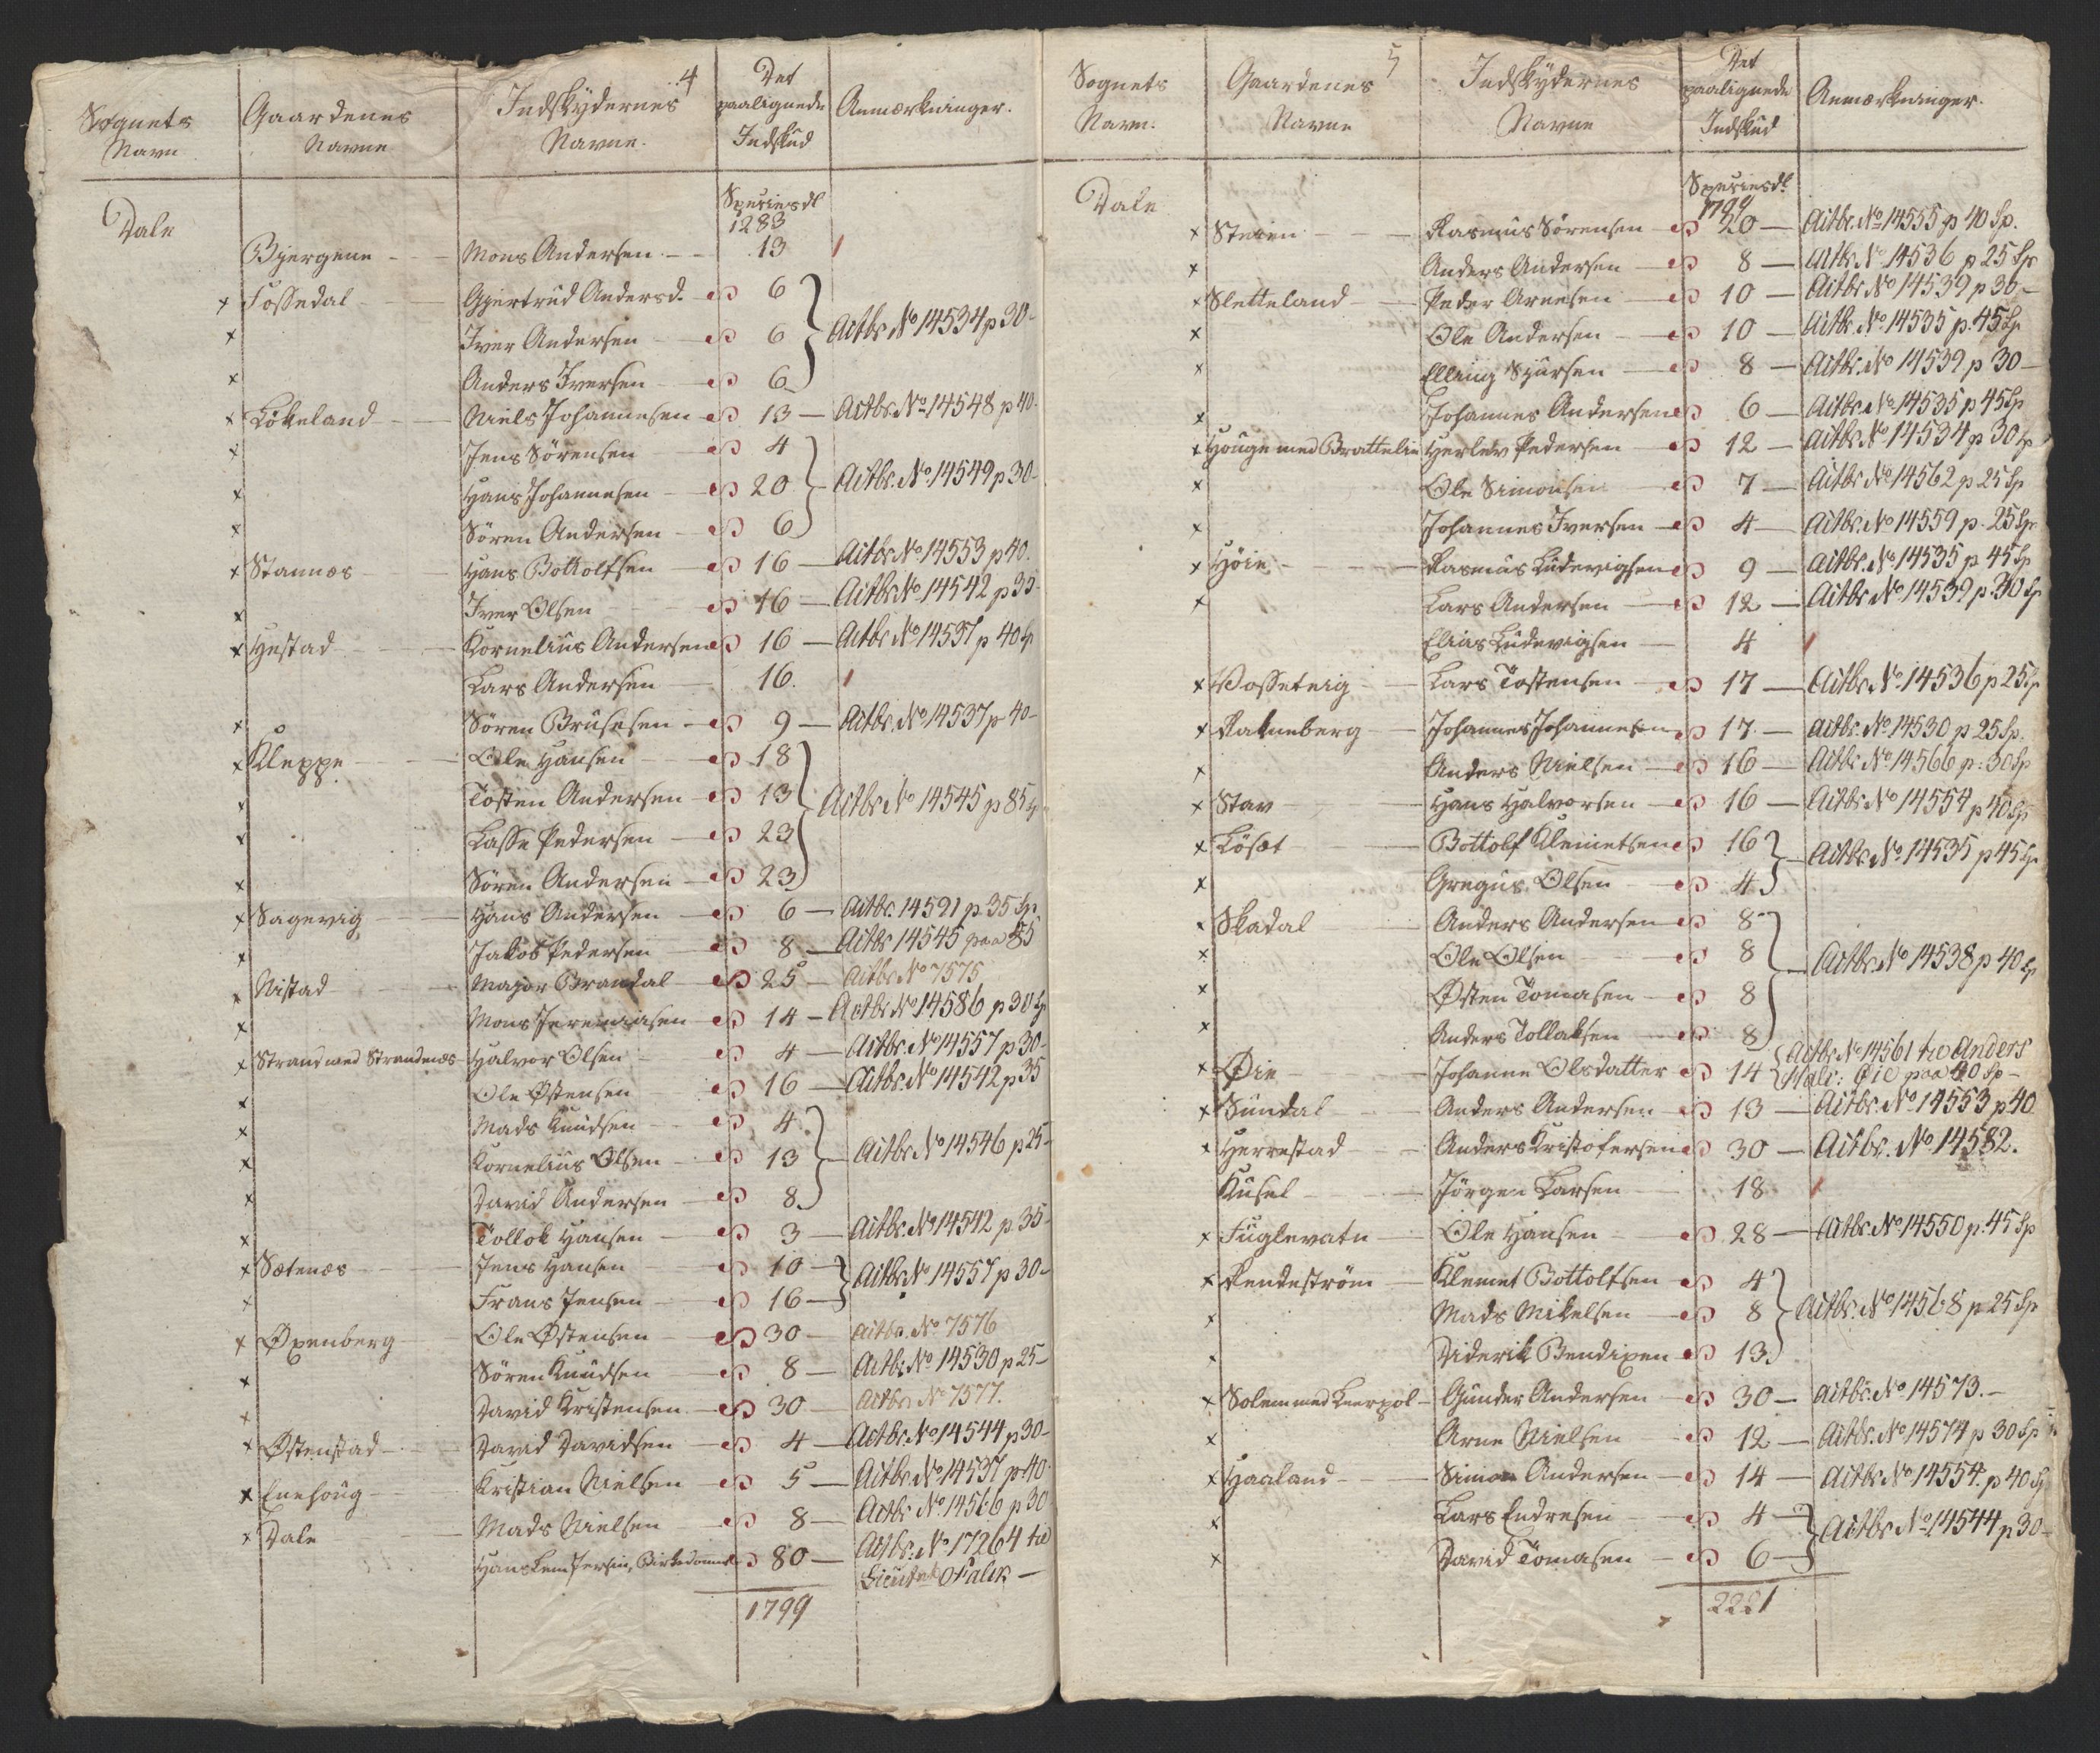 4
Sognets Navn | Gaardenes Navne | Indskydernes Navne. | Det paalignede Indskud | Anmærkninger.
Dale | Speciesdl
1283
Bjergene - Mons Andersen - 13
x Fossedal - Gjertrud Andersd. 6 } Actbr. No 14534 p 30-
x Iver Andersen - 6
x Anders Iversen - 6
x Lökeland - Niels Johannesen - 13 - Actbr. No 14548 p 40-
x Jens Sörensen - 4 } Actbr. No 14549 p 30-
x Hans Johannesen - 20
x Sören Andersen - 6
x Stannæs - Hans Bottolfsen - 16 - Actbr. No 14553 p 40.
x Iver Olsen - 16 - Actbr. No 14542 p 35-
x Hestad - Kornelius Andersen 16 - Actbr. No 14537 p 40 Sp
Lars Andersen - 16.
x Sören Brusesen - 9 - Actbr. No 14537 p 40-
x Kleppe - Ole Hansen - 18 } Actbr. No 14545 p 85 Sp
x Tosten Andersen - 13
x Lasse Pedersen - 23
x Sören Andersen - 23
x Sagevig - Hans Andersen - 6 - Actbr. 14591 p. 35 Sp.
x Jakob Pedersen - 8 - Actbr 14545 paa 85
x Nistad - Major Brandal - 25 - Actbr. No 7575
x Mons Jeremiasen - 14 - Actbr. No 14586 p 30 Sp
x Strand med Strandnæs - Halvor Olsen - 4 - Actbr. No 14557 p 30-
x Ole Østensen - 16 - Actbr. No 14542 p 35
x Mads Knudsen - 4 } Actbr. No 14546 p 25-
x Kornelius Olsen - 13
x David Andersen - 8
x Tollok Hansen - 3 - Actbr. No 14542 p 35-
x Sætenæs - Jens Hansen - 10 } Actbr. No 14557 p 30-
x Frans Jensen - 16
x Øxenberg - Ole Østensen - 30 - Actbr. No 7576
x Sören Knudsen - 8 - Actbr. No 14530 p 25-
x David Kristensen - 30 - Actbr. No 7577.
x Østenstad - David Davidsen - 4 - Actbr. No 14544 p 30-
x Enehoug - Kristian Nielsen - 5 - Actbr. No 14537 p 40-
x Dale - Mads Nielsen - 8 - Actbr. No 14566 p 30
Hans Lem Jersin, Birkedommer 80 - Actbr. No 17264 til
Lieut. Falck -
1799
5
Sognets Navn. | Gaardenes Navne | Indskydernes Navne | Det paalignede Indskud | Anmærkninger.
Dale | Speciesdl
1799
x Steien - Rasmus Sörensen - 20 - Actbr. No 14555 p 40 Sp.
x Anders Andersen - 8 - Actbr. No 14536 p 25 Sp
x Sletteland - Peder Arnesen - 10 - Actbr. No 14539 p 30-
x Ole Andersen - 10 - Actbr. No 14535 p. 45 Sp
x Elling Sjursen - 8 - Actbr. No 14539 p 30-
x Johannes Andersen 6 - Actbr. No 14535 p 45 Sp
x Houge med Brattelie Herlev Pedersen - 12 - Actbr. No 14534 p 30 Sp
x Ole Simonsen 7 - Actbr. No 14562 p 25 Sp
x Johannes Iversen - 4 - Actbr. No 14559 p. 25 Sp.
x Höie - Rasmus Ludevigsen 9 - Actbr. No 14535 p 45 Sp
x Lars Andersen - 12 - Actbr. No 14539 p. 30 Sp
Elias Ludevigsen - 4
x Vosseteig - Lars Tostensen - 17 - Actbr. No 14536 p 25 Sp
x Rakneberg - Johannes Johannesen 17 - Actbr. No 14530 p 25 Sp.
x Anders Nielsen - 16 - Actbr. No 14566 p: 30 Sp
x Stav - Hans Halvorsen - 16 - Actbr. No 14554 p 40 Sp
x Lösæt - Bottolf Klemetsen 16 } Actbr. No 14535 p 45 Sp.
x Gregus Olsen - 4
x Skadal - Anders Andersen 8 } Actbr. No 14538 p 40 Sp
x Ole Olsen - 8
x Østen Tomasen - 8
x Anders Tollaksen - 8
x Øie - Johanne Olsdatter 14 { Actbr. No 14561 til Anders
Halv: Øie paa 40 Sp -
x Sundal - Anders Andersen - 13 - Actbr. No 14553 p 40
x Herrestad - Anders Kristofersen 30 - Actbr. No 14582.
Kusel - Jörgen Larsen - 18
x Fuglevatn - Ole Hansen - 28 - Actbr. No 14550 p. 45 Sp
x Rendeström - Klemet Bottolfsen - 4 } Actbr. No 14568 p 25 Sp
x Mads Mikelsen - 8
x Diderik Bendixen - 13
x Solem med Leerpol - Gunder Andersen - 30 - Actbr. No 14573.-
x Arne Nielsen - 12 - Actbr. No 14574 p 30 Sp
x Haaland - Simon Andersen - 14 - Actbr. No 14554. p 40 Sp
x Lars Endresen - 4 } Actbr. No 14544 p 30-
x David Tomasen - 6
2221